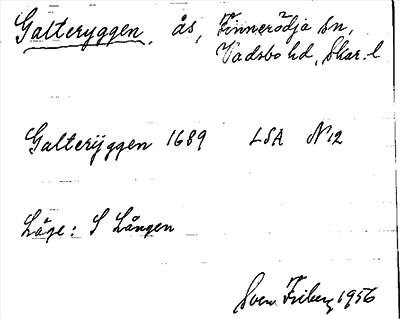 Galteryggen, ås, Finnerödja sn,
Vadsbo hd, Skar. l
Galterÿggen 1689 LSA N12
Läge: S Lången
Sven Friberg 1956